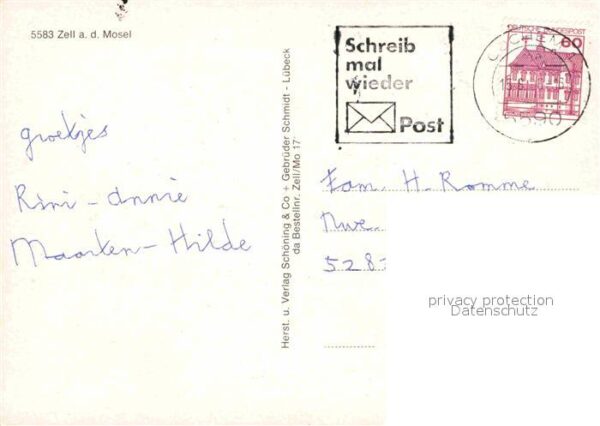 5583 Zell a. d. Mosel
groetjes
Rini - Annie
Maarten - Hilde
Herst. u. Verlag Schöning & Co + Gebrüder Schmidt - Lübeck
da Bestellnr. Zell/Mo 17
Schreib
mal
wieder
Post
DEUTSCHE BUNDESPOST
60
COCHEM
5590
Fam. H. Romme
Nwe.
5283
privacy protection
Datenschutz